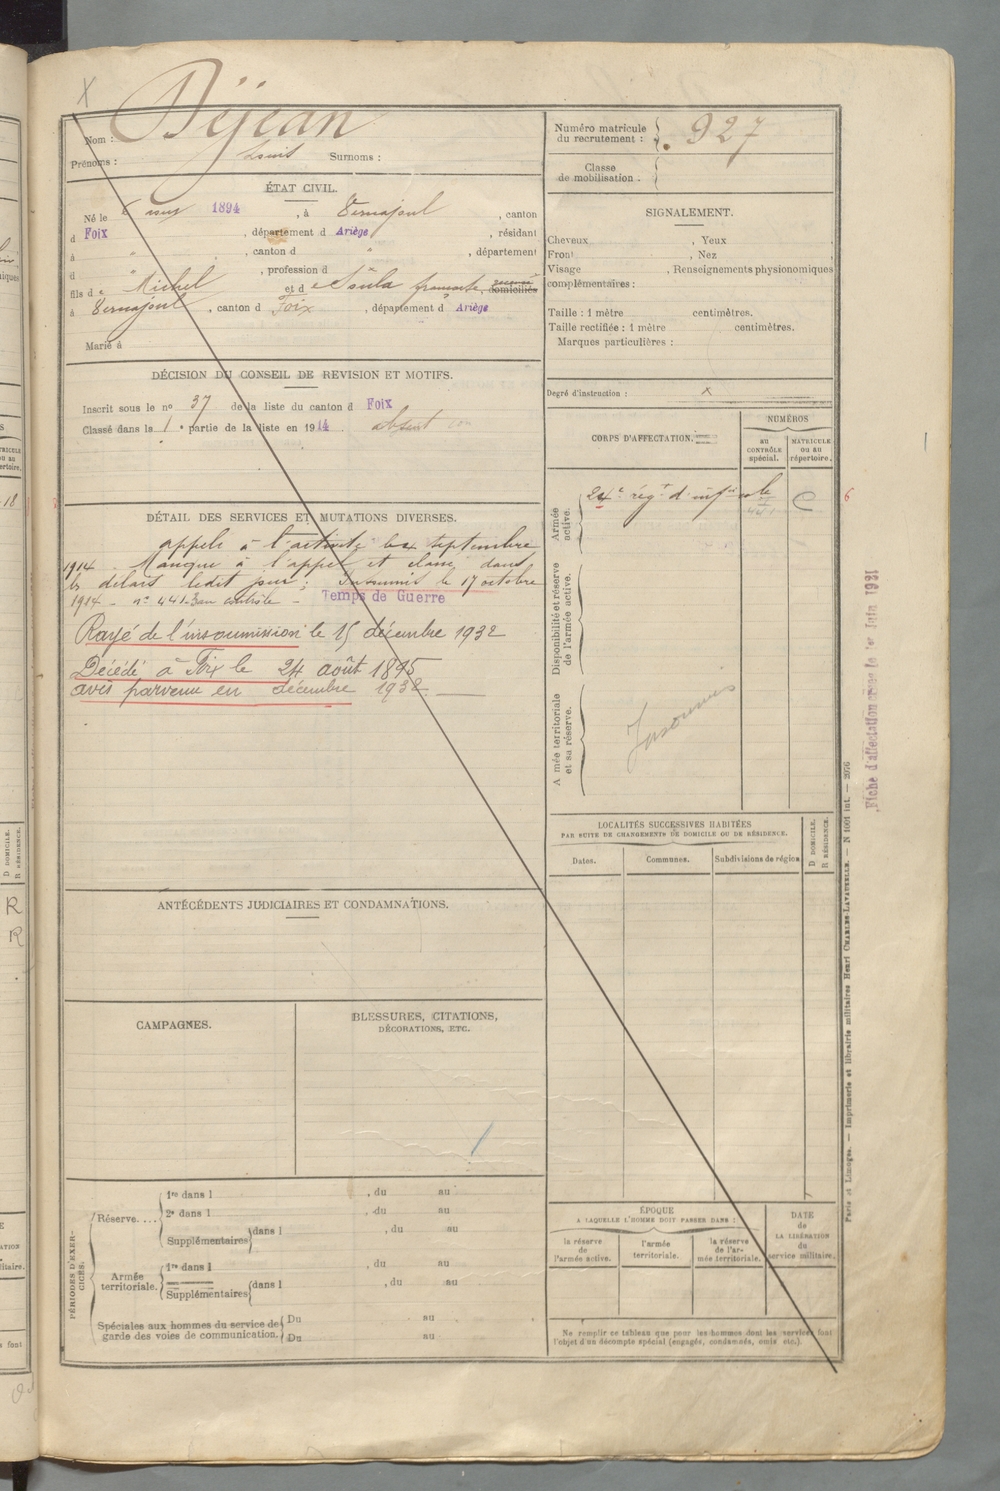 Nom : Déjean
Prénoms : Louis Surnoms :
ÉTAT CIVIL.
Né le 6 1894, à Vernajoul, canton
d Foix, département d Ariège, résidant
à ", canton d ", département
d , profession d
fils de Michel et de Soula françoise, domiciliés
à Vernajoul, canton d Foix, département d Ariège
Marié à
DÉCISION DU CONSEIL DE REVISION ET MOTIFS.
Inscrit sous le nº 37 de la liste du canton d Foix
Classé dans la 1e partie de la liste en 1914. absent
DÉTAIL DES SERVICES ET MUTATIONS DIVERSES.
appelé à l'activité le 4 septembre
1914. Manque à l'appel et dans
les délais ledit jour; Insoumis le 17 octobre
1914 - nº 441 au contrôle - Temps de Guerre
Rayé de l'insoumission le 15 décembre 1932
Décédé à Foix le 24 août 1895
avis parvenu en décembre 1932
ANTÉCÉDENTS JUDICIAIRES ET CONDAMNATIONS.
CAMPAGNES.
BLESSURES, CITATIONS,
DÉCORATIONS, ETC.
PÉRIODES D'EXER-
CICES.
Réserve....
1re dans l , du au
2e dans l , du au
Supplémentaires dans l , du au
Armée
territoriale.
1re dans l , du au
Supplémentaires dans l , du au
Spéciales aux hommes du service de
garde des voies de communication.
Du au
Du au
Numéro matricule
du recrutement : 927
Classe
de mobilisation.
SIGNALEMENT.
Cheveux , Yeux
Front , Nez
Visage , Renseignements physionomiques
complémentaires :
Taille : 1 mètre centimètres.
Taille rectifiée : 1 mètre centimètres.
Marques particulières :
Degré d'instruction : x
CORPS D'AFFECTATION.
NUMÉROS
AU
CONTRÔLE
spécial.
MATRICULE
ou au
répertoire.
Armée
active.
24e régt d'infie cole
Disponibilité et réserve
de l'armée active.
Armée territoriale
et sa réserve.
Insoumis
LOCALITÉS SUCCESSIVES HABITÉES
PAR SUITE DE CHANGEMENTS DE DOMICILE OU DE RÉSIDENCE.
Dates.
Communes.
Subdivisions de région.
D DOMICILE.
R RÉSIDENCE.
ÉPOQUE
A LAQUELLE L'HOMME DOIT PASSER DANS :
la réserve
de
l'armée active.
l'armée
territoriale.
la réserve
de l'ar-
mée territoriale.
DATE
de
LA LIBÉRATION
du
service militaire.
Ne remplir ce tableau que pour les hommes dont les services font
l'objet d'un décompte spécial (engagés, condamnés, omis etc.).
Paris et Limoges. — Imprimerie et librairie militaires Henri CHARLES-LAVAUZELLE. — N 1001 int. — 2076
Fiche d'affectation le 1er Juin 1931
6